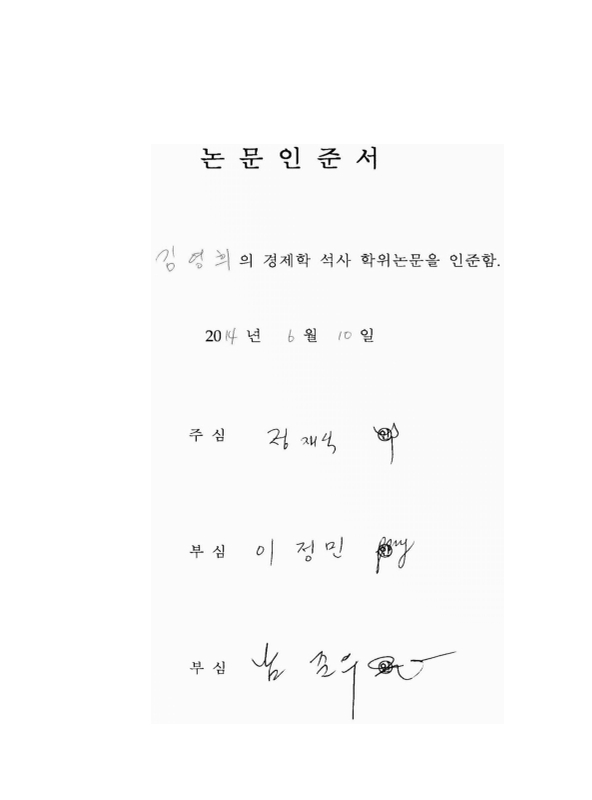 논 문 인 준 서
김 영 희 의 경제학 석사 학위논문을 인준함.
2014 년 6 월 10 일
주 심 정 재식 인
부 심 이 정 민 인
부 심 남 준우 인